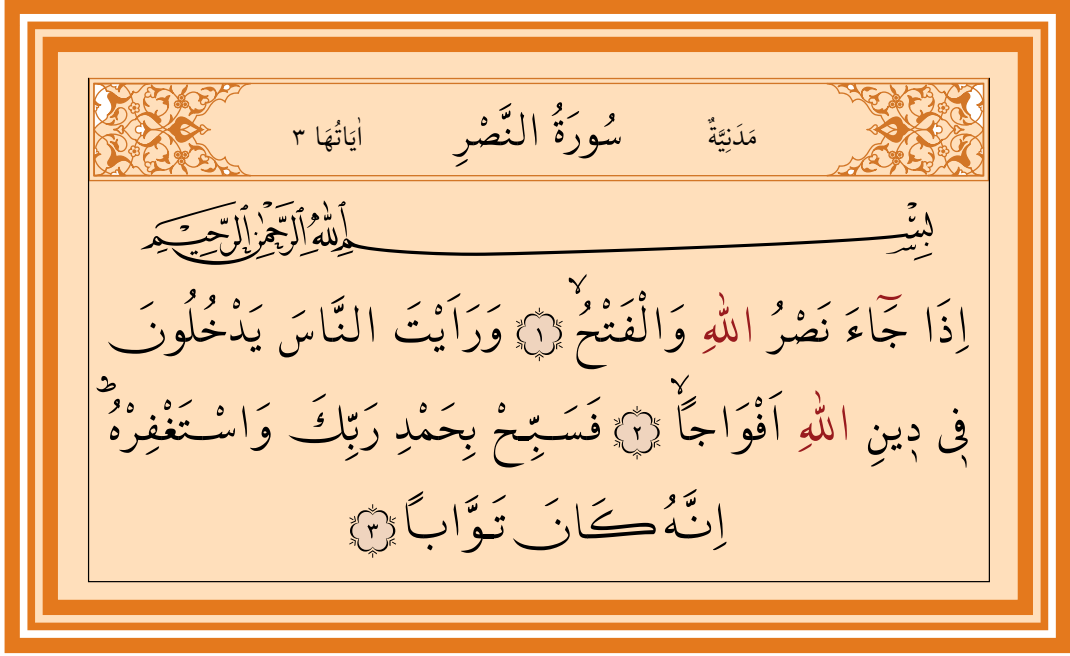 مَدَنِيَّةٌ سُورَةُ النَّصْرِ اٰيَاتُهَا ٣
بِسْمِ اللّٰهِ الرَّحْمٰنِ الرَّحِيمِ
اِذَا جَٓاءَ نَصْرُ اللّٰهِ وَالْفَتْحُۙ ١ وَرَاَيْتَ النَّاسَ يَدْخُلُونَ
فٖى دٖينِ اللّٰهِ اَفْوَاجًاۙ ٢ فَسَبِّحْ بِحَمْدِ رَبِّكَ وَاسْتَغْفِرْهُؕ
اِنَّهُ كَانَ تَوَّابًا ٣